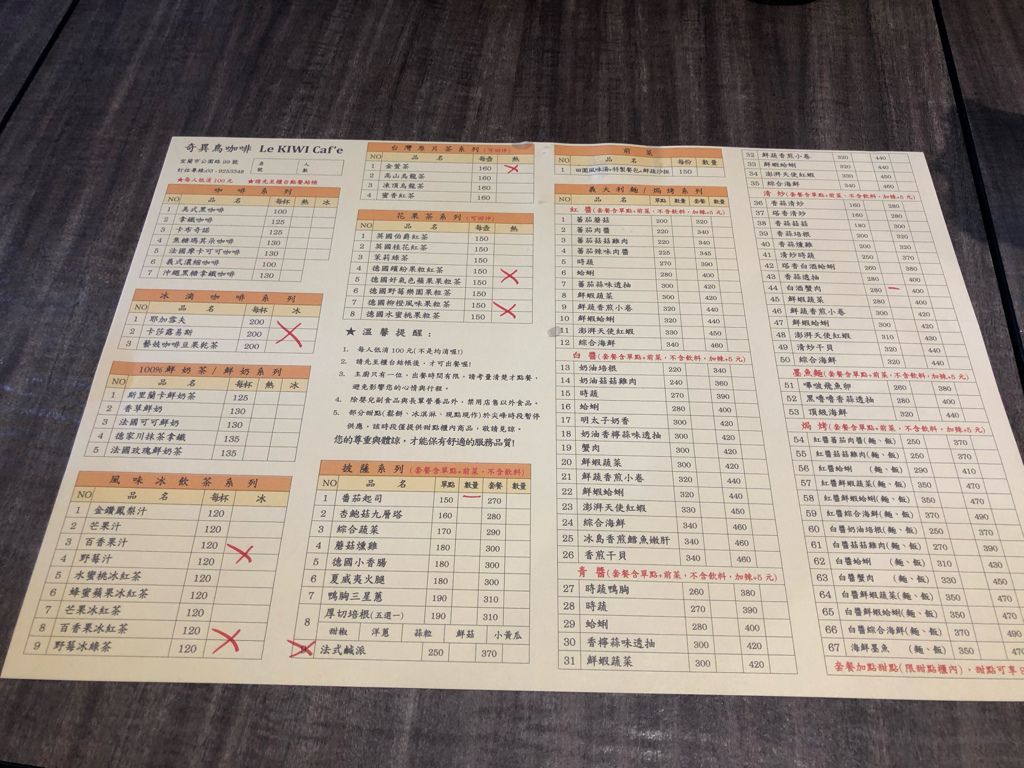 奇異鳥咖啡 Le KIWI Caf'e
宜蘭市公園路99號
訂位專線:03-9253348
桌號 人數
★每人低消100元 ★請先至櫃台點餐結帳
咖啡系列
NO 品名 每杯 熱 冰
1 美式黑咖啡 100
2 拿鐵咖啡 125
3 卡布奇諾 125
4 焦糖瑪其朵咖啡 130
5 法國摩卡可可咖啡 130
6 義式濃縮咖啡 100
7 沖繩黑糖拿鐵咖啡 130
冰滴咖啡系列
NO 品名 每杯 冰
1 耶加雪夫 200
2 卡莎露易斯 200
3 藝妓咖啡豆果乾茶 200
100%鮮奶茶/鮮奶系列
NO 品名 每杯 熱 冰
1 斯里蘭卡鮮奶茶 125
2 香草鮮奶 130
3 法國可可鮮奶 130
4 德家川抹茶拿鐵 135
5 法國玫瑰鮮奶茶 135
風味冰飲茶系列
NO 品名 每杯 冰
1 金鑽鳳梨汁 120
2 芒果汁 120
3 百香果汁 120
4 野莓汁 120
5 水蜜桃冰紅茶 120
6 蜂蜜蘋果冰紅茶 120
7 芒果冰紅茶 120
8 百香果冰紅茶 120
9 野莓冰綠茶 120
台灣原片茶系列(可回沖)
NO 品名 每壺 熱
1 金萱茶 160
2 高山烏龍茶 160
3 凍頂烏龍茶 160
4 蜜香紅茶 160
花果茶系列(可回沖)
NO 品名 每壺 熱
1 英國伯爵紅茶 150
2 英國桂花紅茶 150
3 茉莉綠茶 150
4 德國繽紛果粒紅茶 150
5 德國好氣色蘋果果粒茶 150
6 德國野莓樂園果粒茶 150
7 德國柳橙風味果粒茶 150
8 德國水蜜桃果粒茶 150
★ 溫馨提醒:
1. 每人低消100元(不是均消喔!)
2. 請先至櫃台結帳後,才可出餐喔!
3. 主廚只有一位,出餐時間有限,請考量清楚才點餐,
避免影響您的心情與行程。
4. 除嬰兒副食品與長輩營養品外,禁用店售以外食品。
5. 部分甜點(鬆餅、冰淇淋、現點現作)於尖峰時段暫停
供應,該時段僅提供甜點櫃內商品,敬請見諒。
您的尊重與體諒,才能保有舒適的服務品質!
披薩系列(套餐含單點+前菜,不含飲料)
NO 品名 單點 數量 套餐 數量
1 番茄起司 150 270
2 杏鮑菇九層塔 160 280
3 綜合蔬菜 170 290
4 蘑菇燻雞 180 300
5 德國小香腸 180 300
6 夏威夷火腿 180 300
7 鴨胸三星蔥 190 310
8 厚切培根(五選一) 190 310
甜椒 洋蔥 蒜粒 鮮菇 小黃瓜
9 法式鹹派 250 370
前菜
NO 品名 每份 數量
1 田園風味湯+特製餐包+鮮蔬沙拉 150
義大利麵/焗烤系列
NO 品名 單點 數量 套餐 數量
紅醬(套餐含單點+前菜,不含飲料,加辣+5元)
1 番茄蘑菇 200 320
2 番茄肉醬 220 340
3 番茄菇菇雞肉 220 340
4 番茄辣味肉醬 225 345
5 時蔬 270 390
6 蛤蜊 280 400
7 番茄蒜味透抽 300 420
8 鮮蝦蔬菜 300 420
9 鮮蔬香煎小卷 320 440
10 鮮蝦蛤蜊 320 440
11 澎湃天使紅蝦 330 450
12 綜合海鮮 340 460
白醬(套餐含單點+前菜,不含飲料,加辣+5元)
13 奶油培根 220 340
14 奶油菇菇雞肉 240 360
15 時蔬 270 390
16 蛤蜊 280 400
17 明太子奶香 300 420
18 奶油香檸蒜味透抽 300 420
19 蟹肉 300 420
20 鮮蝦蔬菜 300 420
21 鮮蔬香煎小卷 320 440
22 鮮蝦蛤蜊 320 440
23 澎湃天使紅蝦 330 450
24 綜合海鮮 340 460
25 冰島香煎鱈魚嫩肝 340 460
26 香煎干貝 340 460
青醬(套餐含單點+前菜,不含飲料,加辣+5元)
27 時蔬鴨胸 260 380
28 時蔬 270 390
29 蛤蜊 280 400
30 香檸蒜味透抽 300 420
31 鮮蝦蔬菜 300 420
32 鮮蔬香煎小卷 320 440
33 鮮蝦蛤蜊 320 440
34 澎湃天使紅蝦 330 450
35 綜合海鮮 340 460
清炒(套餐含單點+前菜,不含飲料,加辣+5元)
36 香蒜清炒 160 280
37 塔香清炒 160 280
38 香蒜菇菇 180 300
39 香蒜培根 200 320
40 香蒜燻雞 200 320
41 清炒時蔬 250 370
42 塔香白酒蛤蜊 260 380
43 香蒜透抽 280 400
44 白酒蟹肉 280 400
45 鮮蝦蔬菜 280 400
46 鮮蔬香煎小卷 300 420
47 鮮蝦蛤蜊 300 420
48 澎湃天使紅蝦 310 430
49 清炒干貝 320 440
50 綜合海鮮 320 440
墨魚麵(套餐含單點+前菜,不含飲料,加辣+5元)
51 嗶啵飛魚卵 260 380
52 黑嚕嚕香蒜透抽 280 400
53 頂級海鮮 320 440
焗烤(套餐含單點+前菜,不含飲料,加辣+5元)
54 紅醬番茄肉醬(麵、飯) 250 370
55 紅醬菇菇雞肉(麵、飯) 250 370
56 紅醬蛤蜊(麵、飯) 290 410
57 紅醬鮮蝦蔬菜(麵、飯) 350 470
58 紅醬鮮蝦蛤蜊(麵、飯) 350 470
59 紅醬綜合海鮮(麵、飯) 370 490
60 白醬奶油培根(麵、飯) 250 370
61 白醬菇菇雞肉(麵、飯) 270 390
62 白醬蛤蜊 (麵、飯) 310 430
63 白醬蟹肉 (麵、飯) 330 450
64 白醬鮮蝦蔬菜(麵、飯) 350 470
65 白醬鮮蝦蛤蜊(麵、飯) 350 470
66 白醬綜合海鮮(麵、飯) 370 490
67 海鮮墨魚 (麵、飯) 350 470
套餐加點甜點(限甜點櫃內),甜點可享